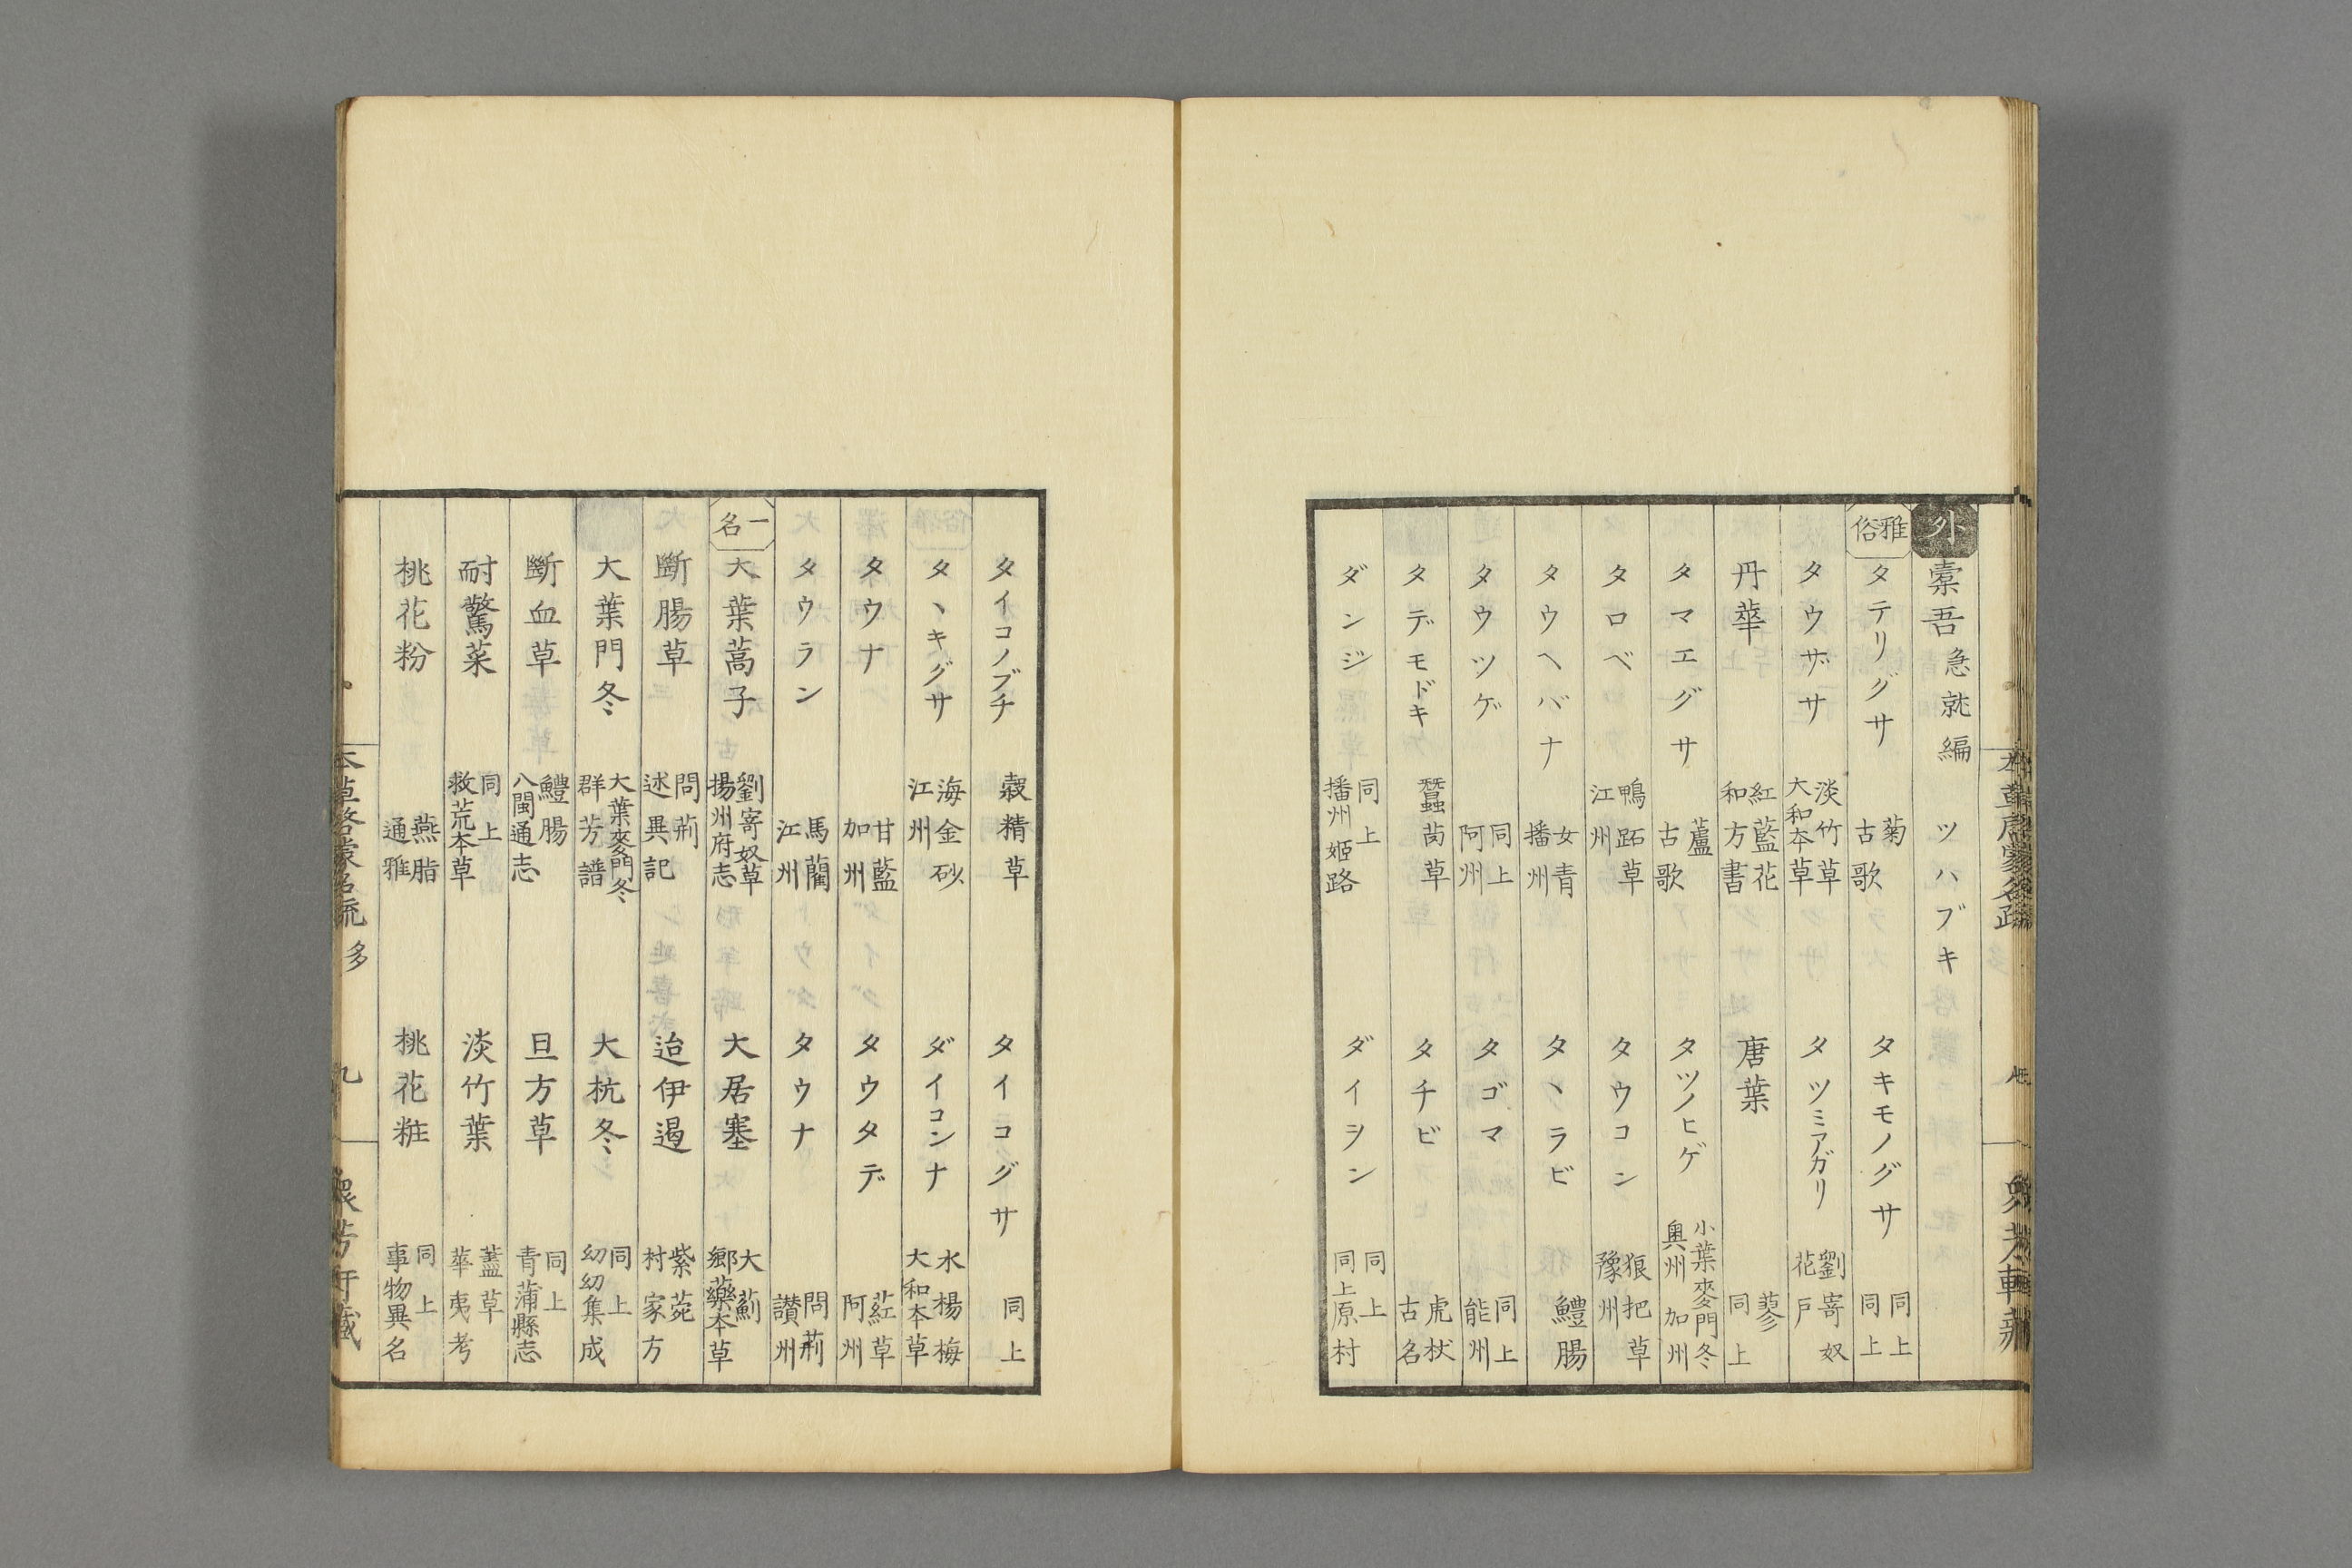 外 橐吾 急就編 ツハブキ
雅俗 タテリグサ 菊 古歌 タキモノグサ 同上 同上
タウザサ 淡竹草 大和本草 タツミアガリ 劉寄奴 花戸
丹華 紅藍花 和方書 唐葉 蓼 同上
タマエグサ 蘆 古歌 タツノヒゲ 小葉麥門冬 奥州 加州
タロベ 鴨跖草 江州 タウコン 狼把草 豫州
タウヘバナ 女青 播州 タヽラビ 鱧腸
タウツゲ 同上 阿州 タゴマ 同上 能州
タデモドキ 蠶茵草 タチビ 虎杖 古名
ダンジ 同上 播州姫路 ダイヲン 同上 同上原村
タイコノブチ 穀精草 タイコグサ 同上
タヽキグサ 海金砂 江州 ダイコンナ 水楊梅 大和本草
タウナ 甘藍 加州 タウタデ 葒草 阿州
タウラン 馬藺 江州 タウナ 問荊 讃州
一名 大葉蒿子 劉寄奴草 揚州府志 大居塞 大薊 郷藥本草
斷腸草 問荊 述異記 迨伊遏 紫菀 村家方
大葉門冬 大葉麥門冬 群芳譜 大杭冬 同上 幼幼集成
斷血草 鱧腸 八閩通志 旦方草 同上 青蒲縣志
耐驚菜 同上 救荒本草 淡竹葉 藎草 華夷考
桃花粉 燕脂 通雅 桃花粧 同上 事物異名
本草啓蒙名疏 多 九